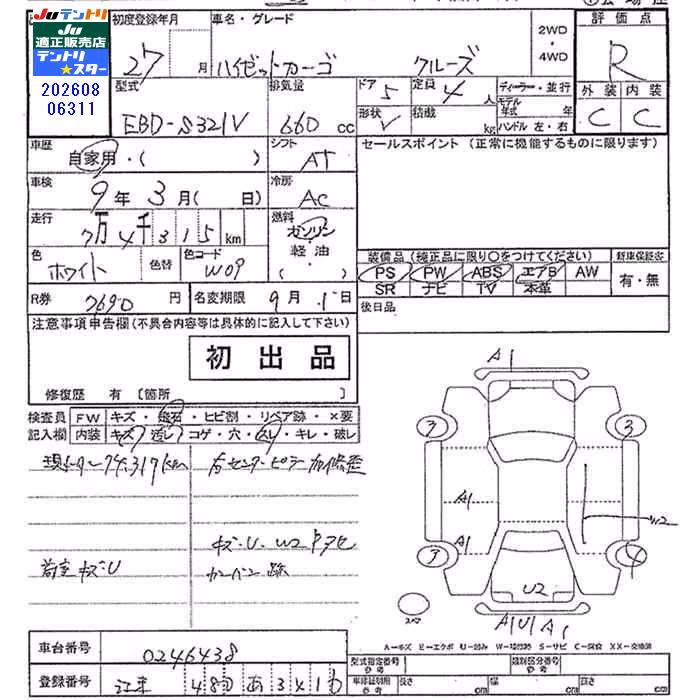 JUテントリ
JU
適正販売店
テントリ
★スター
202608
06311
初度登録年月
27 月
車名・グレード
ハイゼットカーゴ クルーズ
2WD
・
4WD
評価点
R
外装 内装
C C
型式
EBD-S321V
排気量
660 cc
ドア 5
定員 4 人
ディーラー・並行
形状 V
積載 kg
モデル年式 年
ハンドル 左・右
車歴
自家用・( )
シフト
AT
セールスポイント (正常に機能するものに限ります)
車検
9年 3月( 日)
冷房
AC
走行
7万4千315 km
燃料
ガソリン
軽油
( ・ )
色
ホワイト
色替
色コード
W09
装備品 (純正品に限り〇をつけてください)
新車保証書
PS PW ABS エアB AW
有・無
SR ナビ TV 本革
R券
7690 円
名変期限
9月 1日
後日品
注意事項申告欄(不具合内容等は具体的に記入して下さい)
初出品
修復歴 有 [箇所 ]
検査員
記入欄
FW キズ・飛石・ヒビ割・リペア跡・×要
内装 キズ・汚レ・コゲ・穴・スレ・キレ・破レ
現メーター74,317km
右センターピラー加修歪
キズ・U・W2 P アセ
荷室キズU
カンバン跡
A1
3 3
A1
A1
W2
3 4
U2
スペア
A1U1A1
A-キズ E-エクボ U-凹み W-補修跡 S-サビ C-腐食 XX-交換済
車台番号
0246438
型式指定番号 参考
類別区分番号 参考
登録番号
480 あ 3410
車非証記載 参考
長さ cm
幅 cm
高さ cm